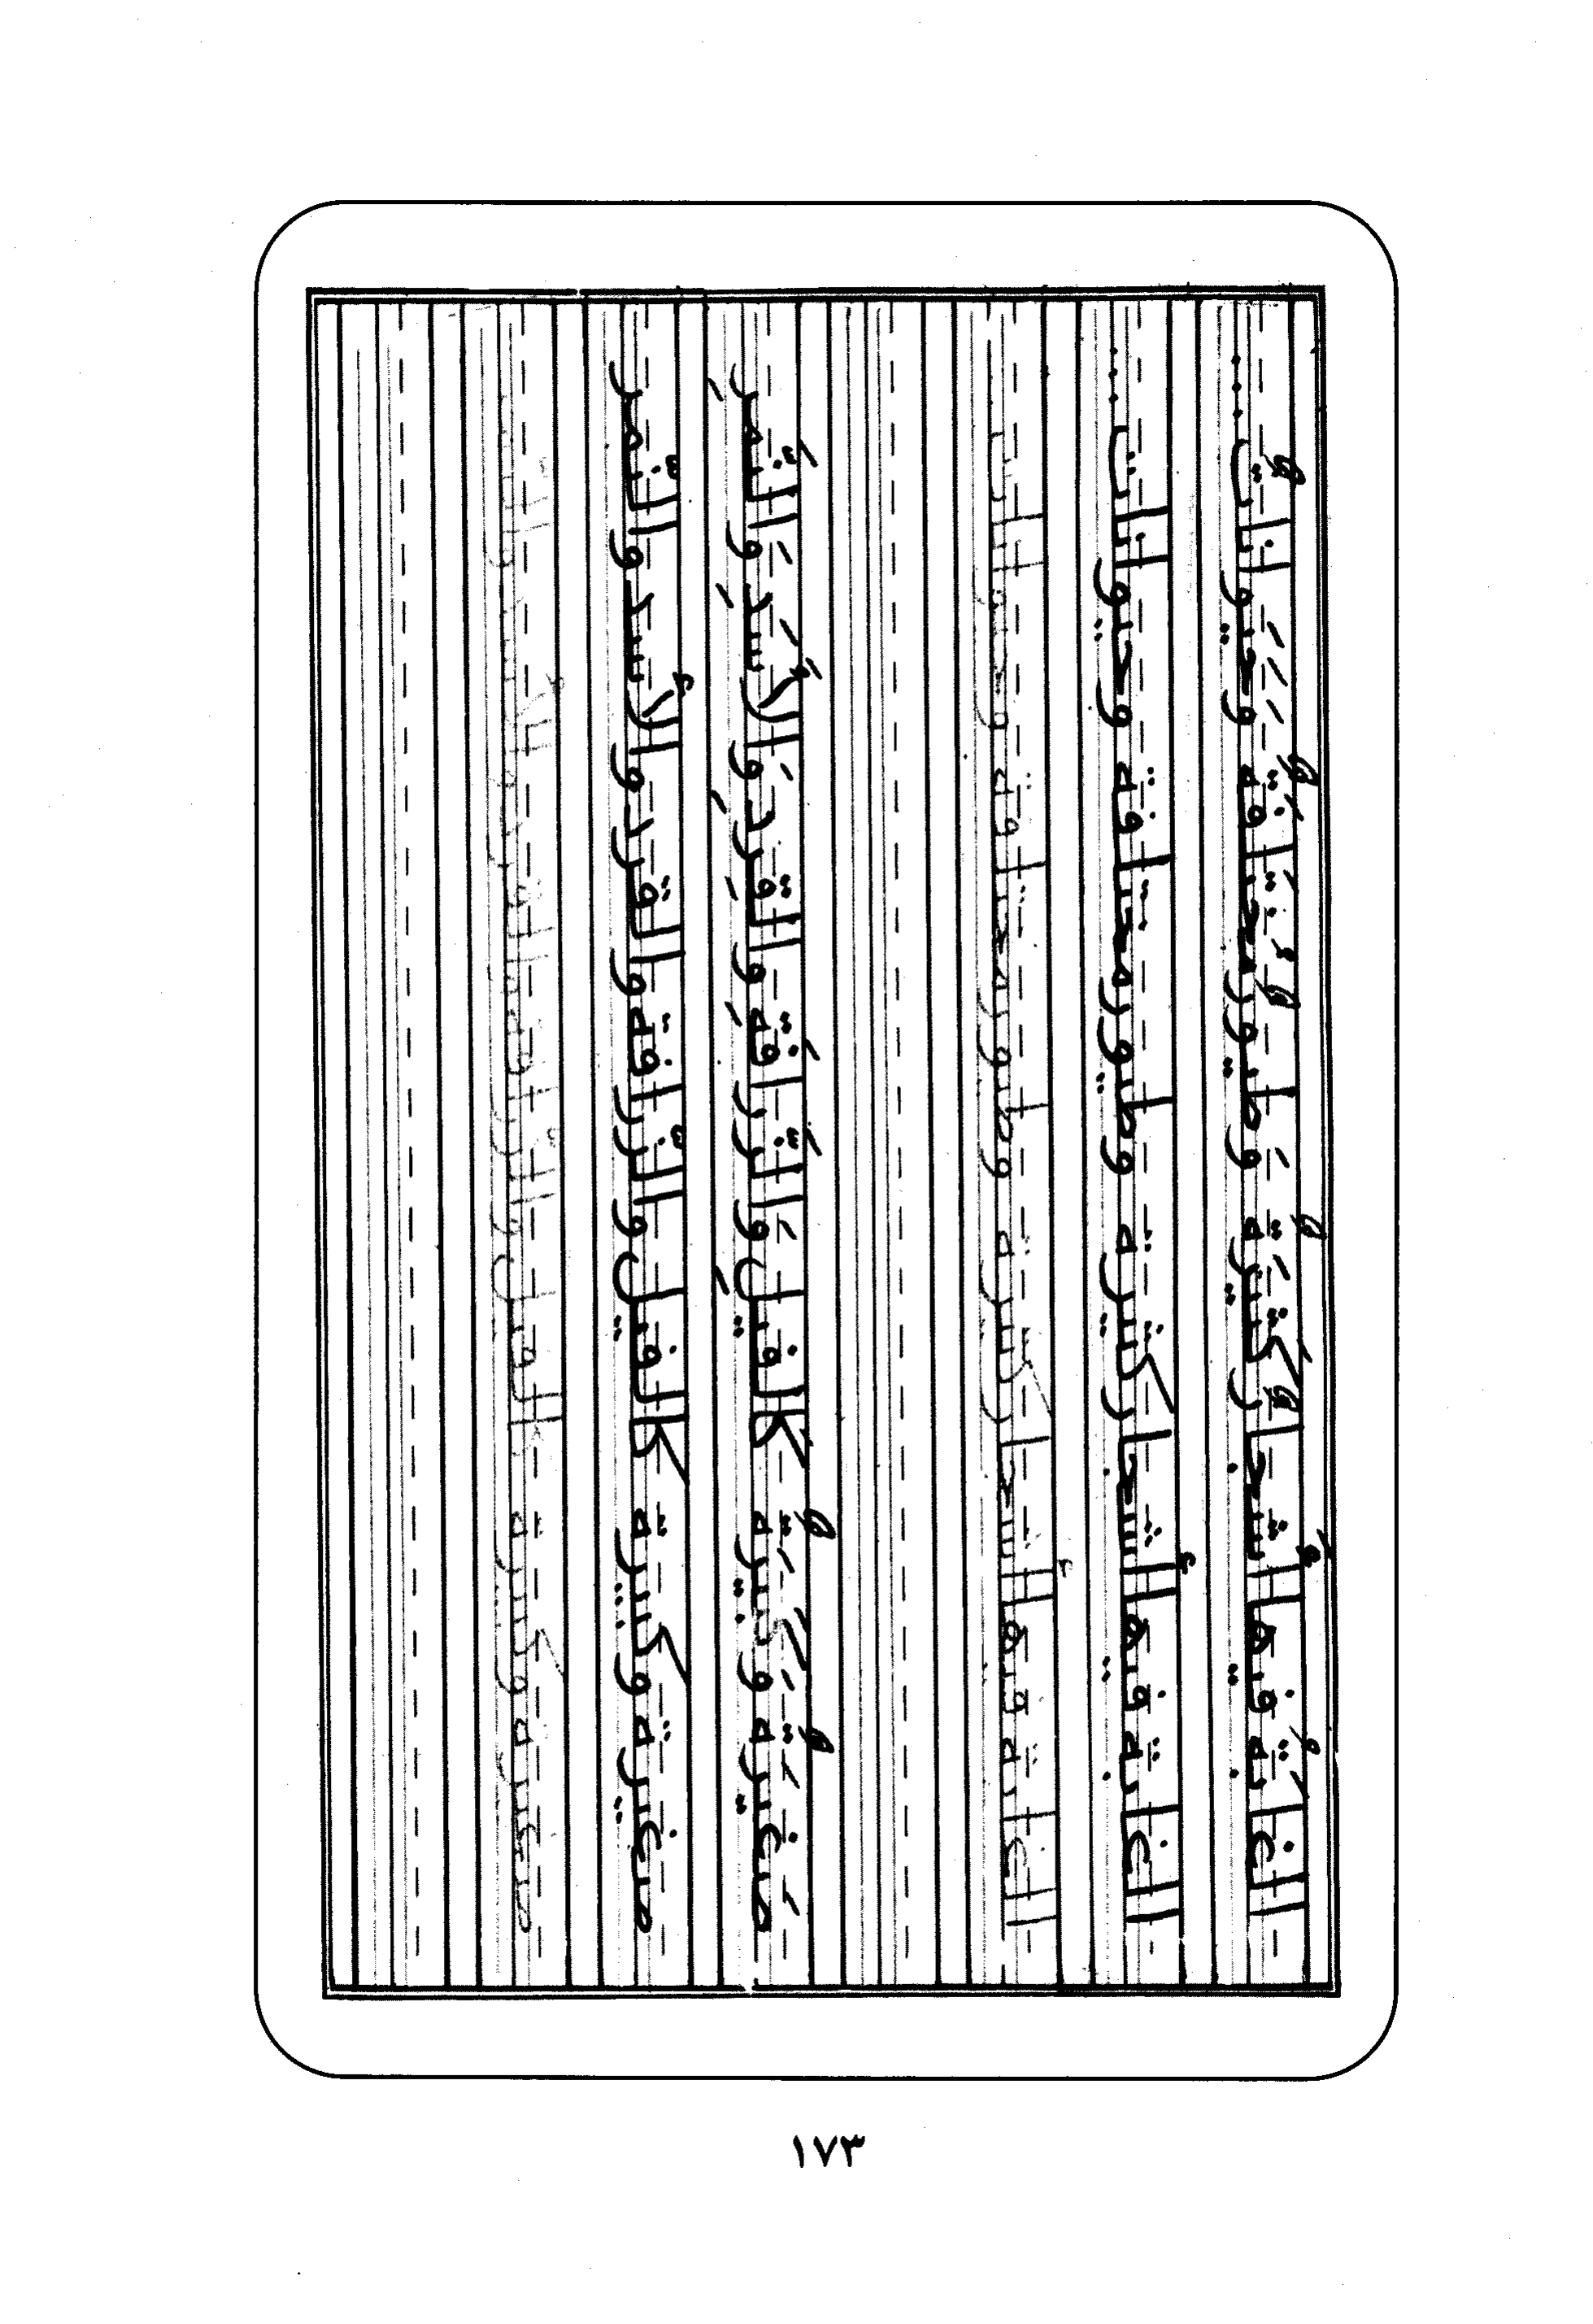 الغَابَةُ فيها أَشجارٌ كَثيرَةٌ وَطيورٌ مُختَلفَةٌ وَحَيَواناتٌ ...
الغابة فيها أشجار كثيرة وطيور مختلفة وحيوانات ...
الغابة فيها أشجار كثيرة وطيور مختلفة وحيوانات
صَغيرَةٌ وَكَبيرَةٌ كَالفيلِ وَالزَّرافَةِ والقِردِ وَالأَسَدِ وَالنَّمرِ
صغيرة وكبيرة كالفيل والزّرافة والقرد والأسد والنّمر
صغيرة وكبيرة كالفيل والزّرافة والقرد والأسد والنّمر
١٧٣